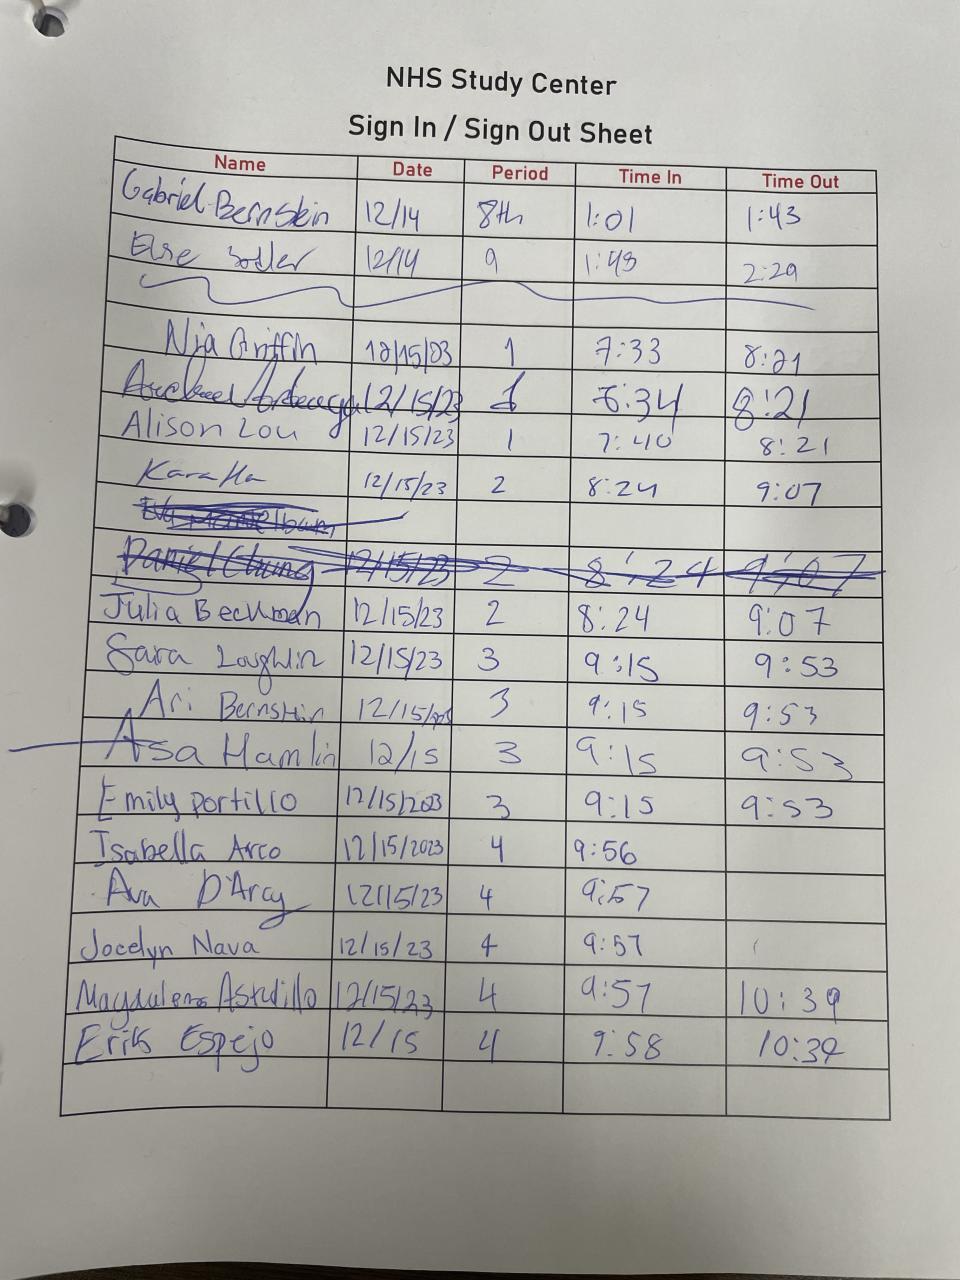 NHS Study Center
Sign In / Sign Out Sheet
Name Date Period Time In Time Out
Gabriel Bernstein 12/14 8th 1:01 1:43
Else 12/14 9 1:43 2:29
Nia Griffin 12/15/23 1 7:33 8:21
12/15/23 1 7:34 8:21
Alison Lou 12/15/23 1 7:40 8:21
Kara Ha 12/15/23 2 8:24 9:07
Daniel Chung 12/15/23 2 8:24 9:07
Julia Beckman 12/15/23 2 8:24 9:07
Sara Loughlin 12/15/23 3 9:15 9:53
Ari Bernstein 12/15/23 3 9:15 9:53
Asa Hamlin 12/15 3 9:15 9:53
Emily portillo 12/15/2023 3 9:15 9:53
Isabella Arco 12/15/2023 4 9:56
Ava D'Arcy 12/15/23 4 9:57
Jocelyn Nava 12/15/23 4 9:57
Magdalena Astudillo 12/15/23 4 9:57 10:39
Erik Espejo 12/15 4 9:58 10:39